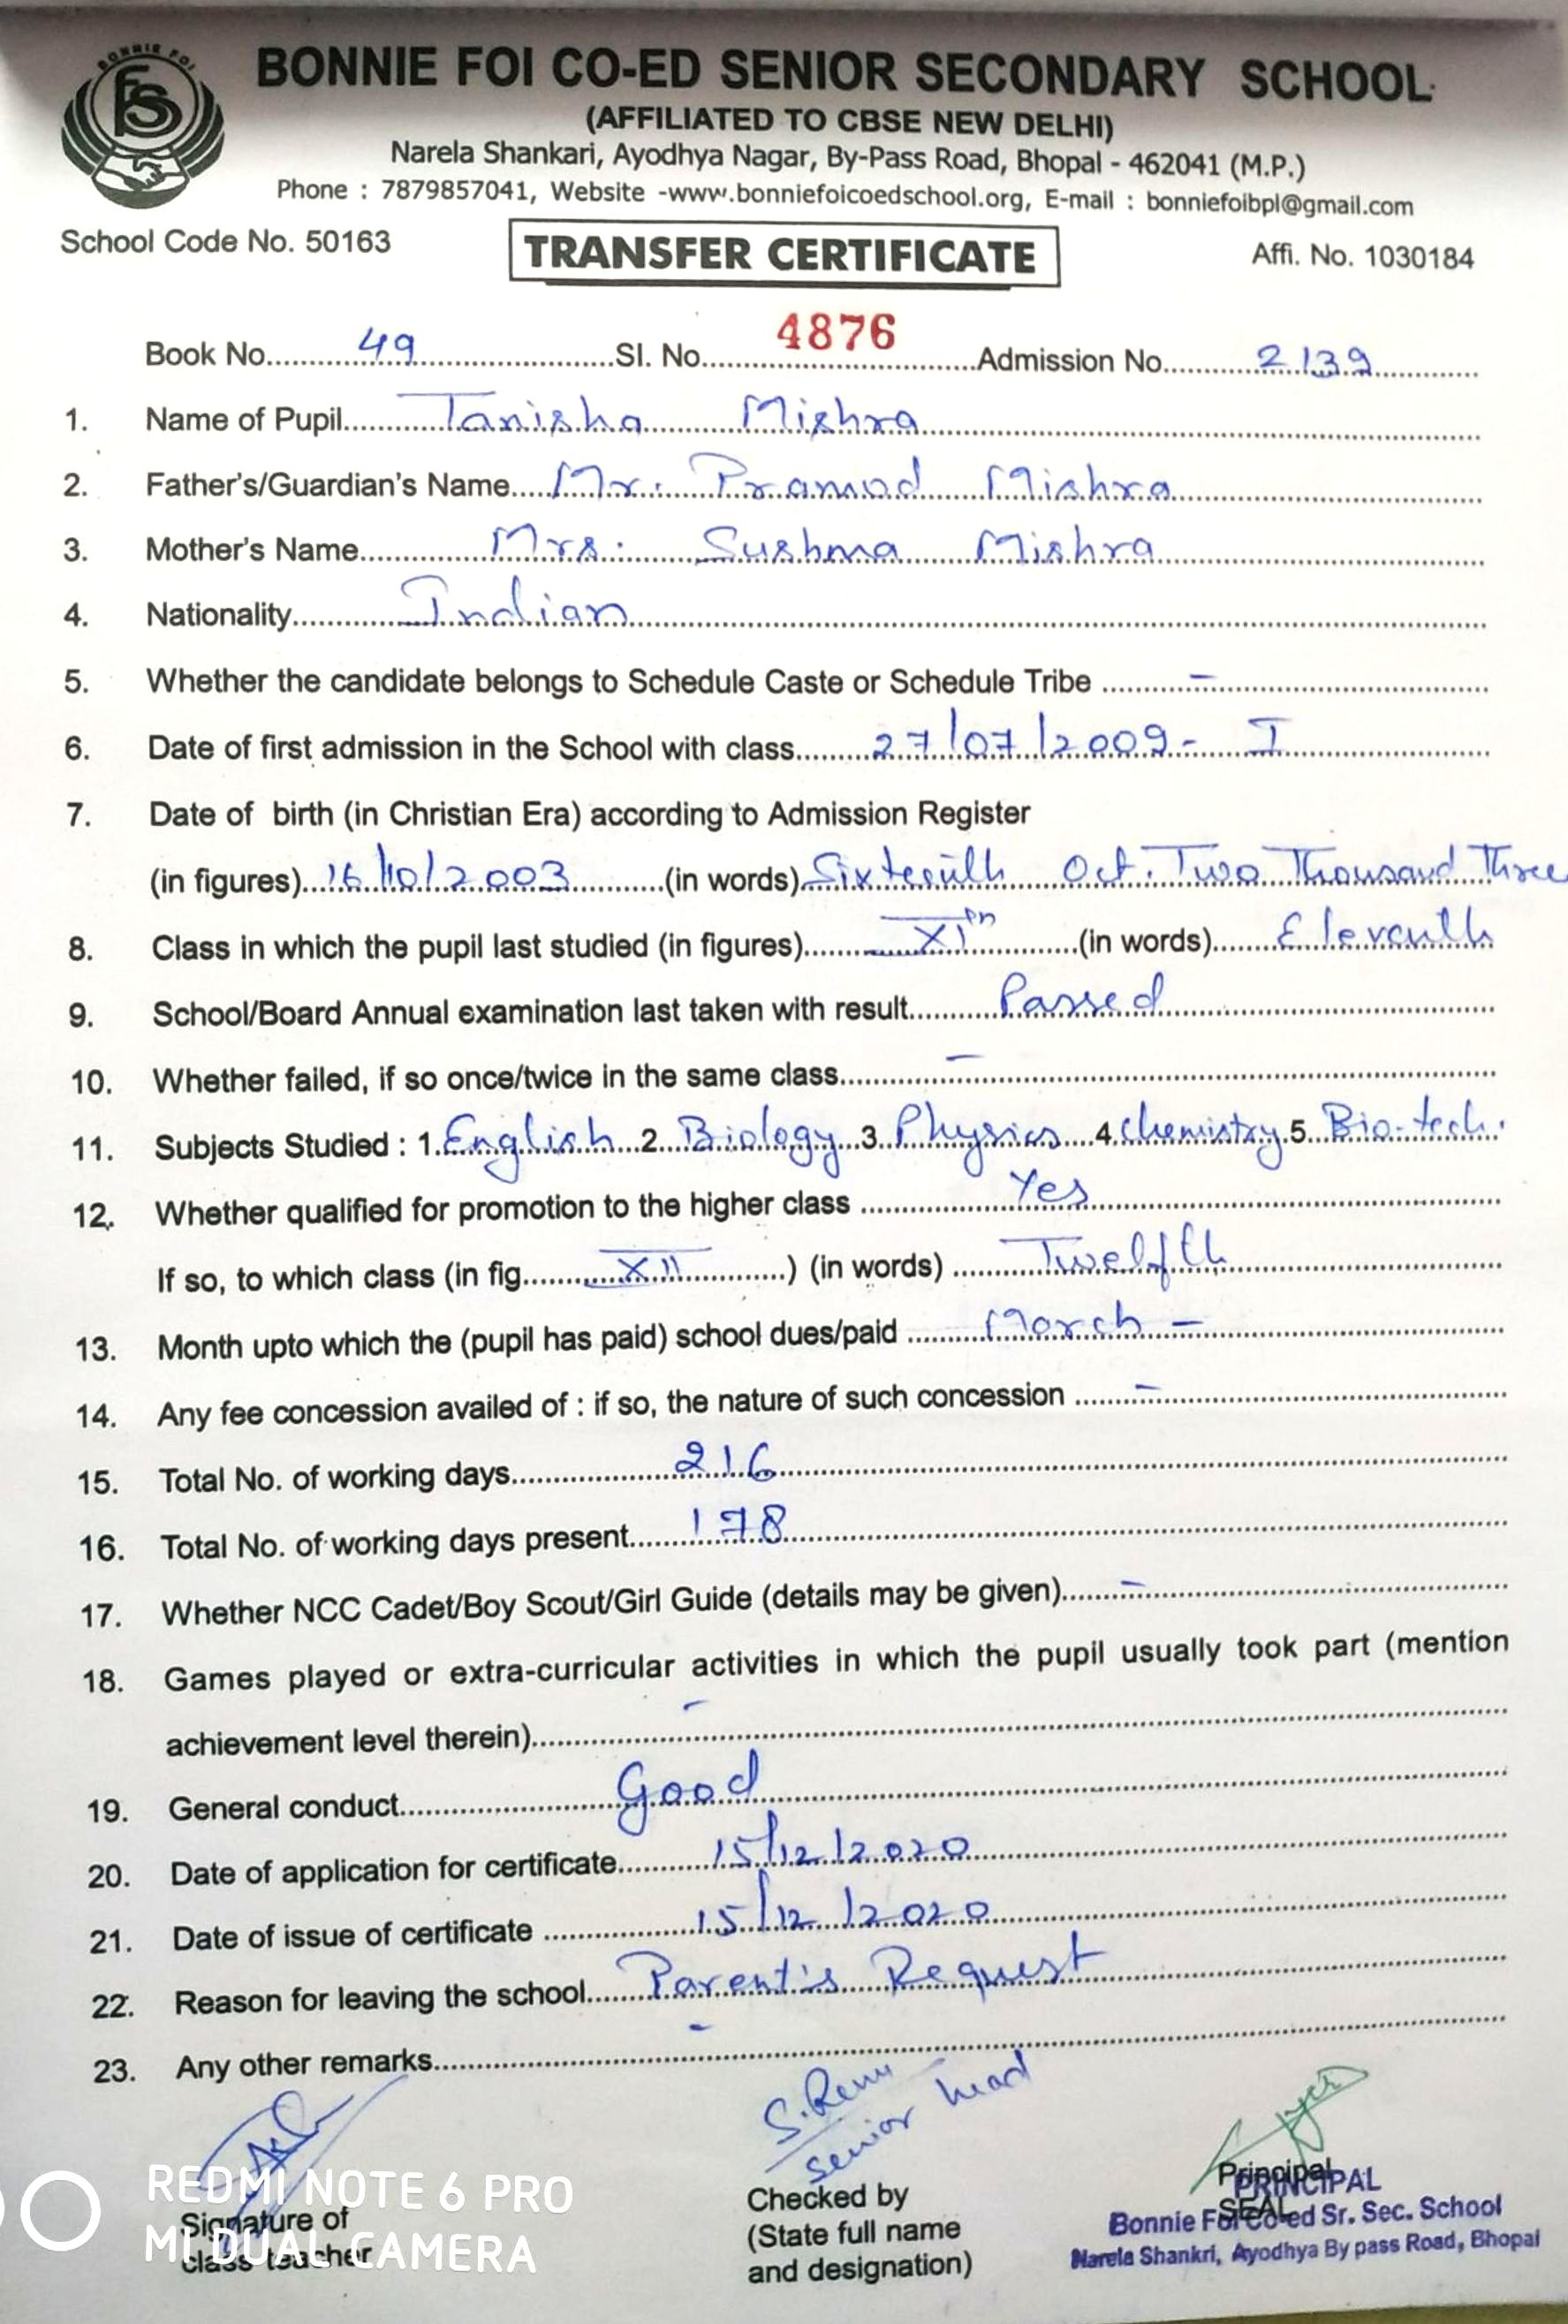 BONNIE FOI
FS
BONNIE FOI CO-ED SENIOR SECONDARY SCHOOL
(AFFILIATED TO CBSE NEW DELHI)
Narela Shankari, Ayodhya Nagar, By-Pass Road, Bhopal - 462041 (M.P.)
Phone : 7879857041, Website -www.bonniefoicoedschool.org, E-mail : bonniefoibpl@gmail.com
School Code No. 50163 TRANSFER CERTIFICATE Affi. No. 1030184
Book No. 49 Sl. No. 4876 Admission No. 2139
1. Name of Pupil Tanisha Mishra
2. Father's/Guardian's Name Mr. Pramod Mishra
3. Mother's Name Mrs. Sushma Mishra
4. Nationality Indian
5. Whether the candidate belongs to Schedule Caste or Schedule Tribe -
6. Date of first admission in the School with class 27/07/2009 - I
7. Date of birth (in Christian Era) according to Admission Register
(in figures) 16/10/2003 (in words) Sixteenth Oct. Two Thousand Three
8. Class in which the pupil last studied (in figures) XIth (in words) Eleventh
9. School/Board Annual examination last taken with result Passed
10. Whether failed, if so once/twice in the same class -
11. Subjects Studied : 1. English 2. Biology 3. Physics 4. Chemistry 5. Bio-tech.
12. Whether qualified for promotion to the higher class Yes
If so, to which class (in fig. XII ) (in words) Twelfth
13. Month upto which the (pupil has paid) school dues/paid March -
14. Any fee concession availed of : if so, the nature of such concession -
15. Total No. of working days 216
16. Total No. of working days present 178
17. Whether NCC Cadet/Boy Scout/Girl Guide (details may be given) -
18. Games played or extra-curricular activities in which the pupil usually took part (mention
achievement level therein) -
19. General conduct Good
20. Date of application for certificate 15/12/2020
21. Date of issue of certificate 15/12/2020
22. Reason for leaving the school Parent's Request
23. Any other remarks -
S. Renu
Senior head
Signature of
class teacher
Checked by
(State full name
and designation)
Principal
SEAL
PRINCIPAL
Bonnie Foi Co-ed Sr. Sec. School
Narela Shankri, Ayodhya By pass Road, Bhopal
REDMI NOTE 6 PRO
MI DUAL CAMERA